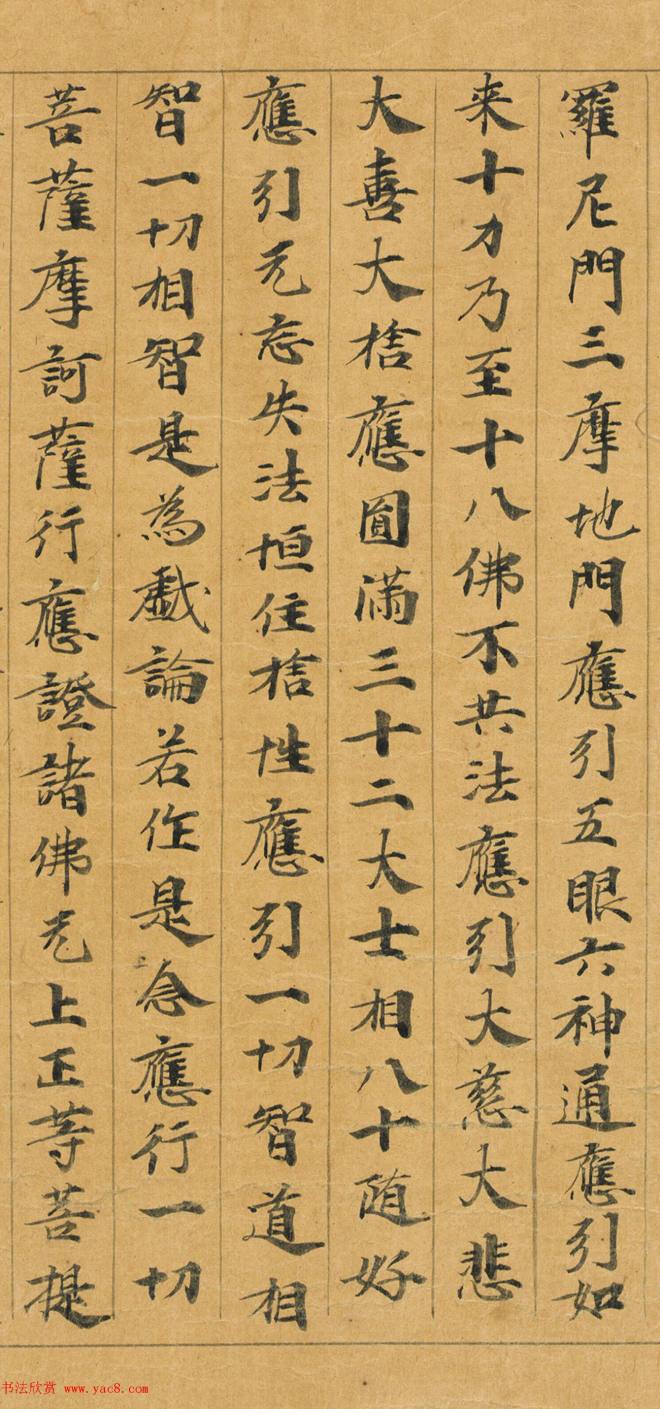 羅尼門三摩地門應引五眼六神通應引如
来十力乃至十八佛不共法應引大慈大悲
大喜大捨應圓滿三十二大士相八十随好
應引无忘失法恒住捨性應引一切智道相
智一切相智是為戲論若作是念應行一切
菩薩摩訶薩行應證諸佛无上正等菩提
书法欣赏 www.yac8.com